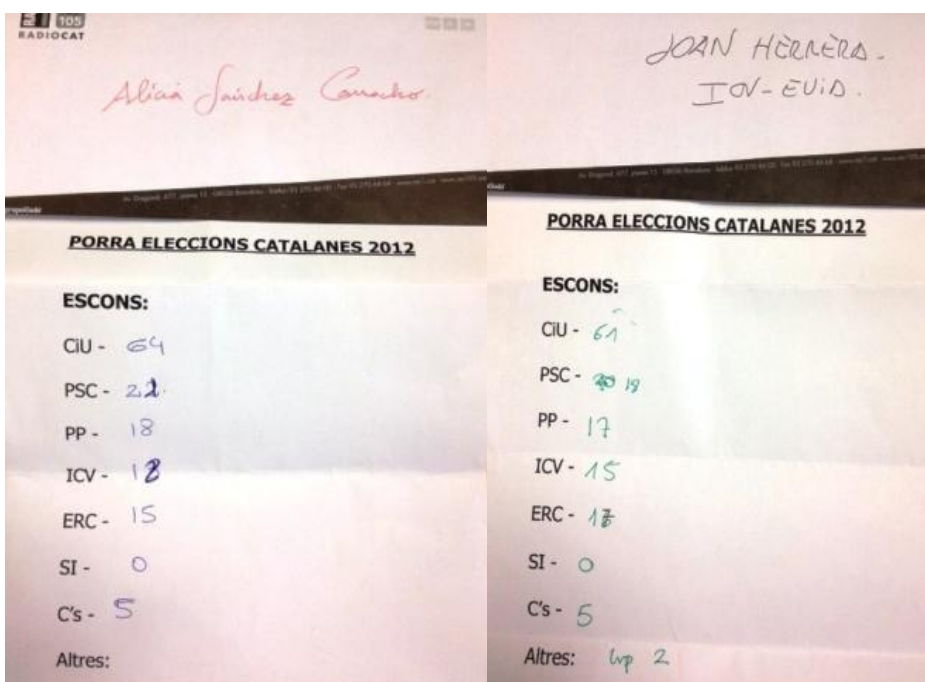 105
RADIOCAT
Alicia Sánchez Camacho.
PORRA ELECCIONS CATALANES 2012
ESCONS:
CiU - 64
PSC - 21.
PP - 18
ICV - 12
ERC - 15
SI - 0
C's - 5
Altres:
JOAN HERRERA.
ICV-EUiA.
PORRA ELECCIONS CATALANES 2012
ESCONS:
CiU - 61
PSC - 18
PP - 17
ICV - 15
ERC - 17
SI - 0
C's - 5
Altres: cup 2